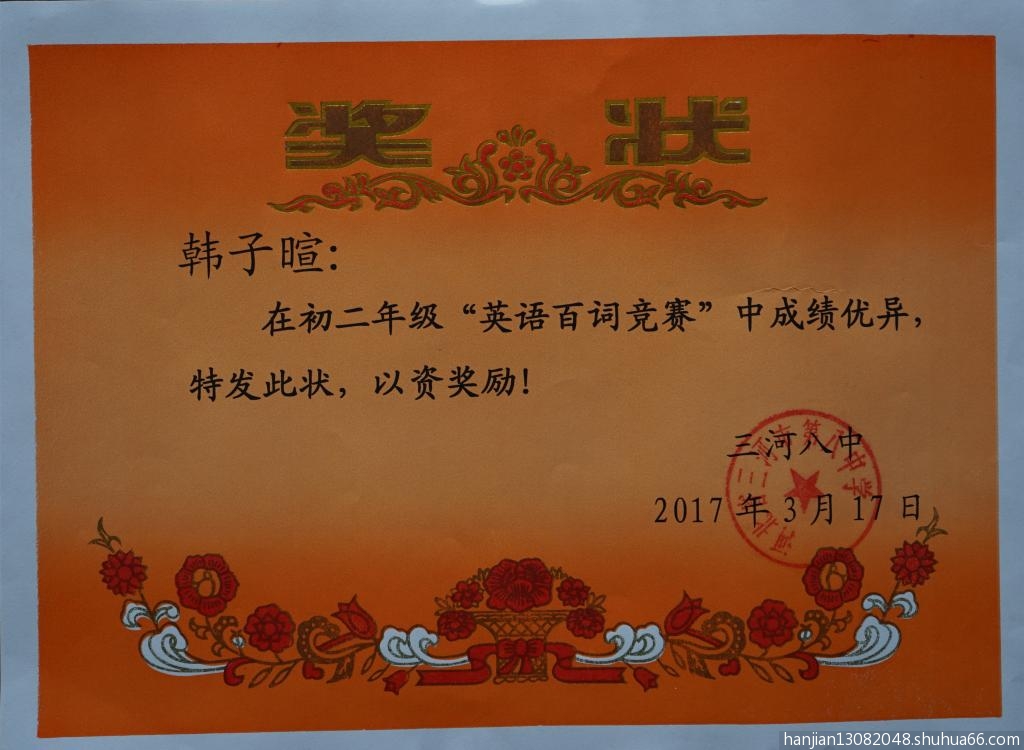 奖状
韩子暄：
在初二年级“英语百词竞赛”中成绩优异，
特发此状，以资奖励！
三河八中
河北省三河市第八中学
2017年3月17日
hanjian13082048.shuhua66.com